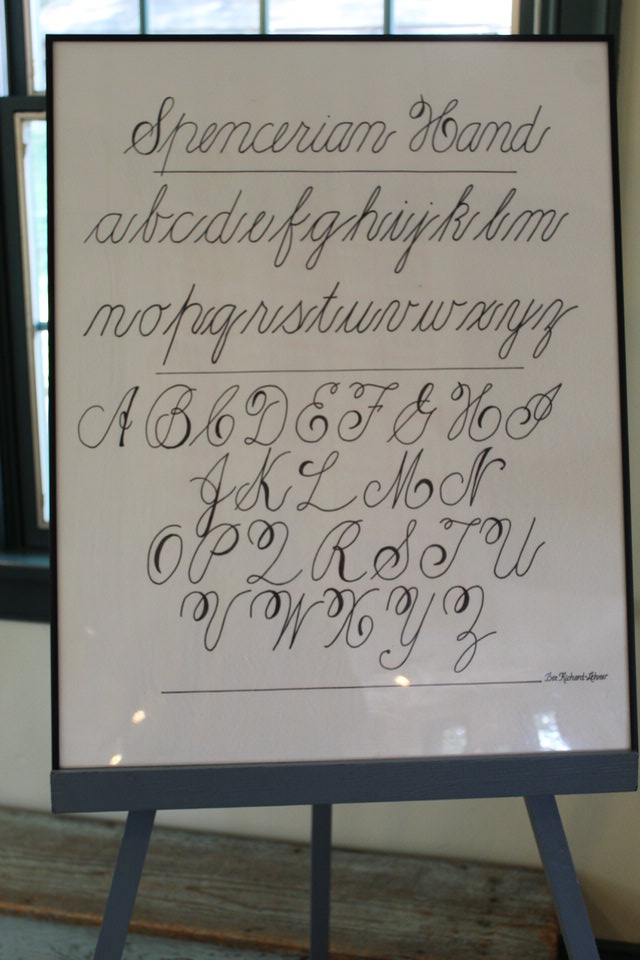 Spencerian Hand
abcdefghijklm
nopqrstuvwxyz
ABCDEFGHI
JKLMN
OPQRSTU
VWXYZ
Bee Richard-Lehner